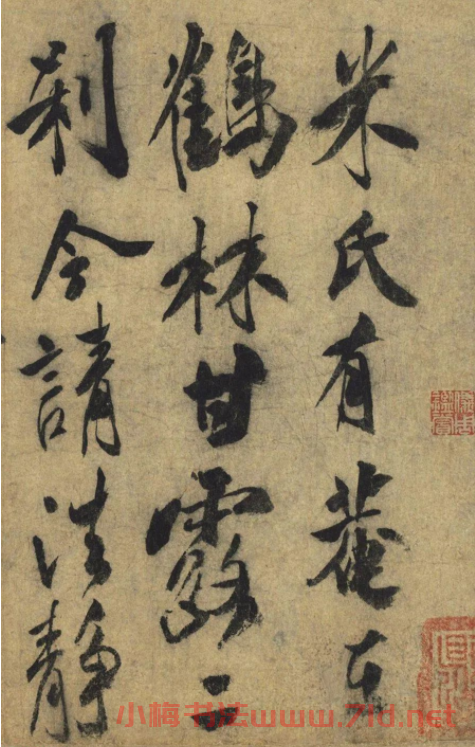 米氏有菴在
鶴林甘露二
刹今請法靜
小梅书法www.71d.net